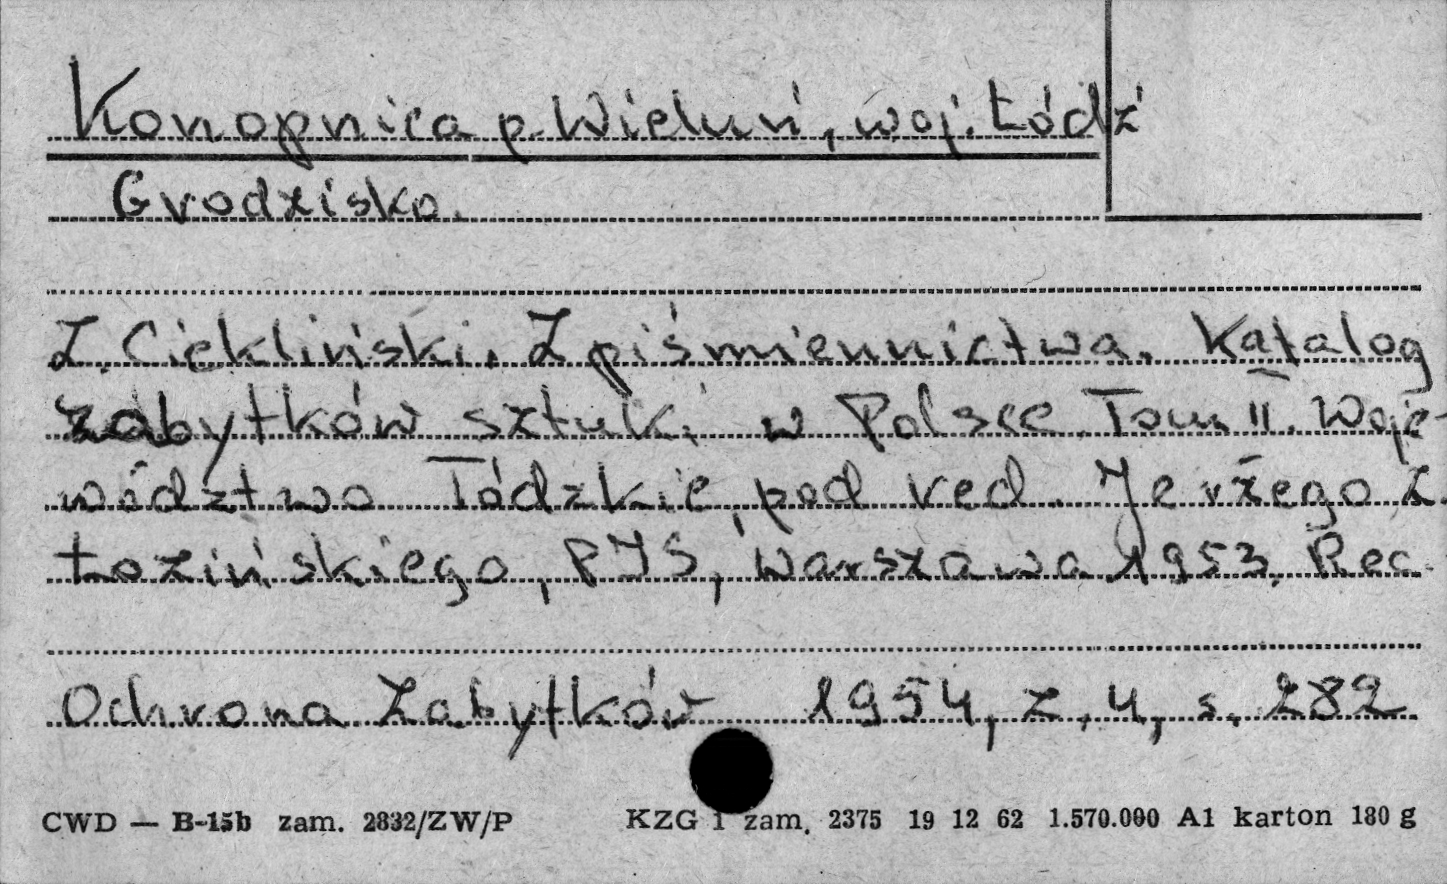 Konopnica p. Wieluń, woj. Łódź
Grodzisko.
Z. Ciekliński. Z piśmiennictwa. Katalog
zabytków sztuki w Polsce. Tom II. Woje-
wództwo Łódzkie, pod red. Jerzego Z.
Łozińskiego, PIS, Warszawa 1953. Rec.
Ochrona Zabytków 1954, z. 4, s. 282
CWD — B-15b zam. 2832/ZW/P KZG 1 zam. 2375 19 12 62 1.570.000 A1 karton 180 g